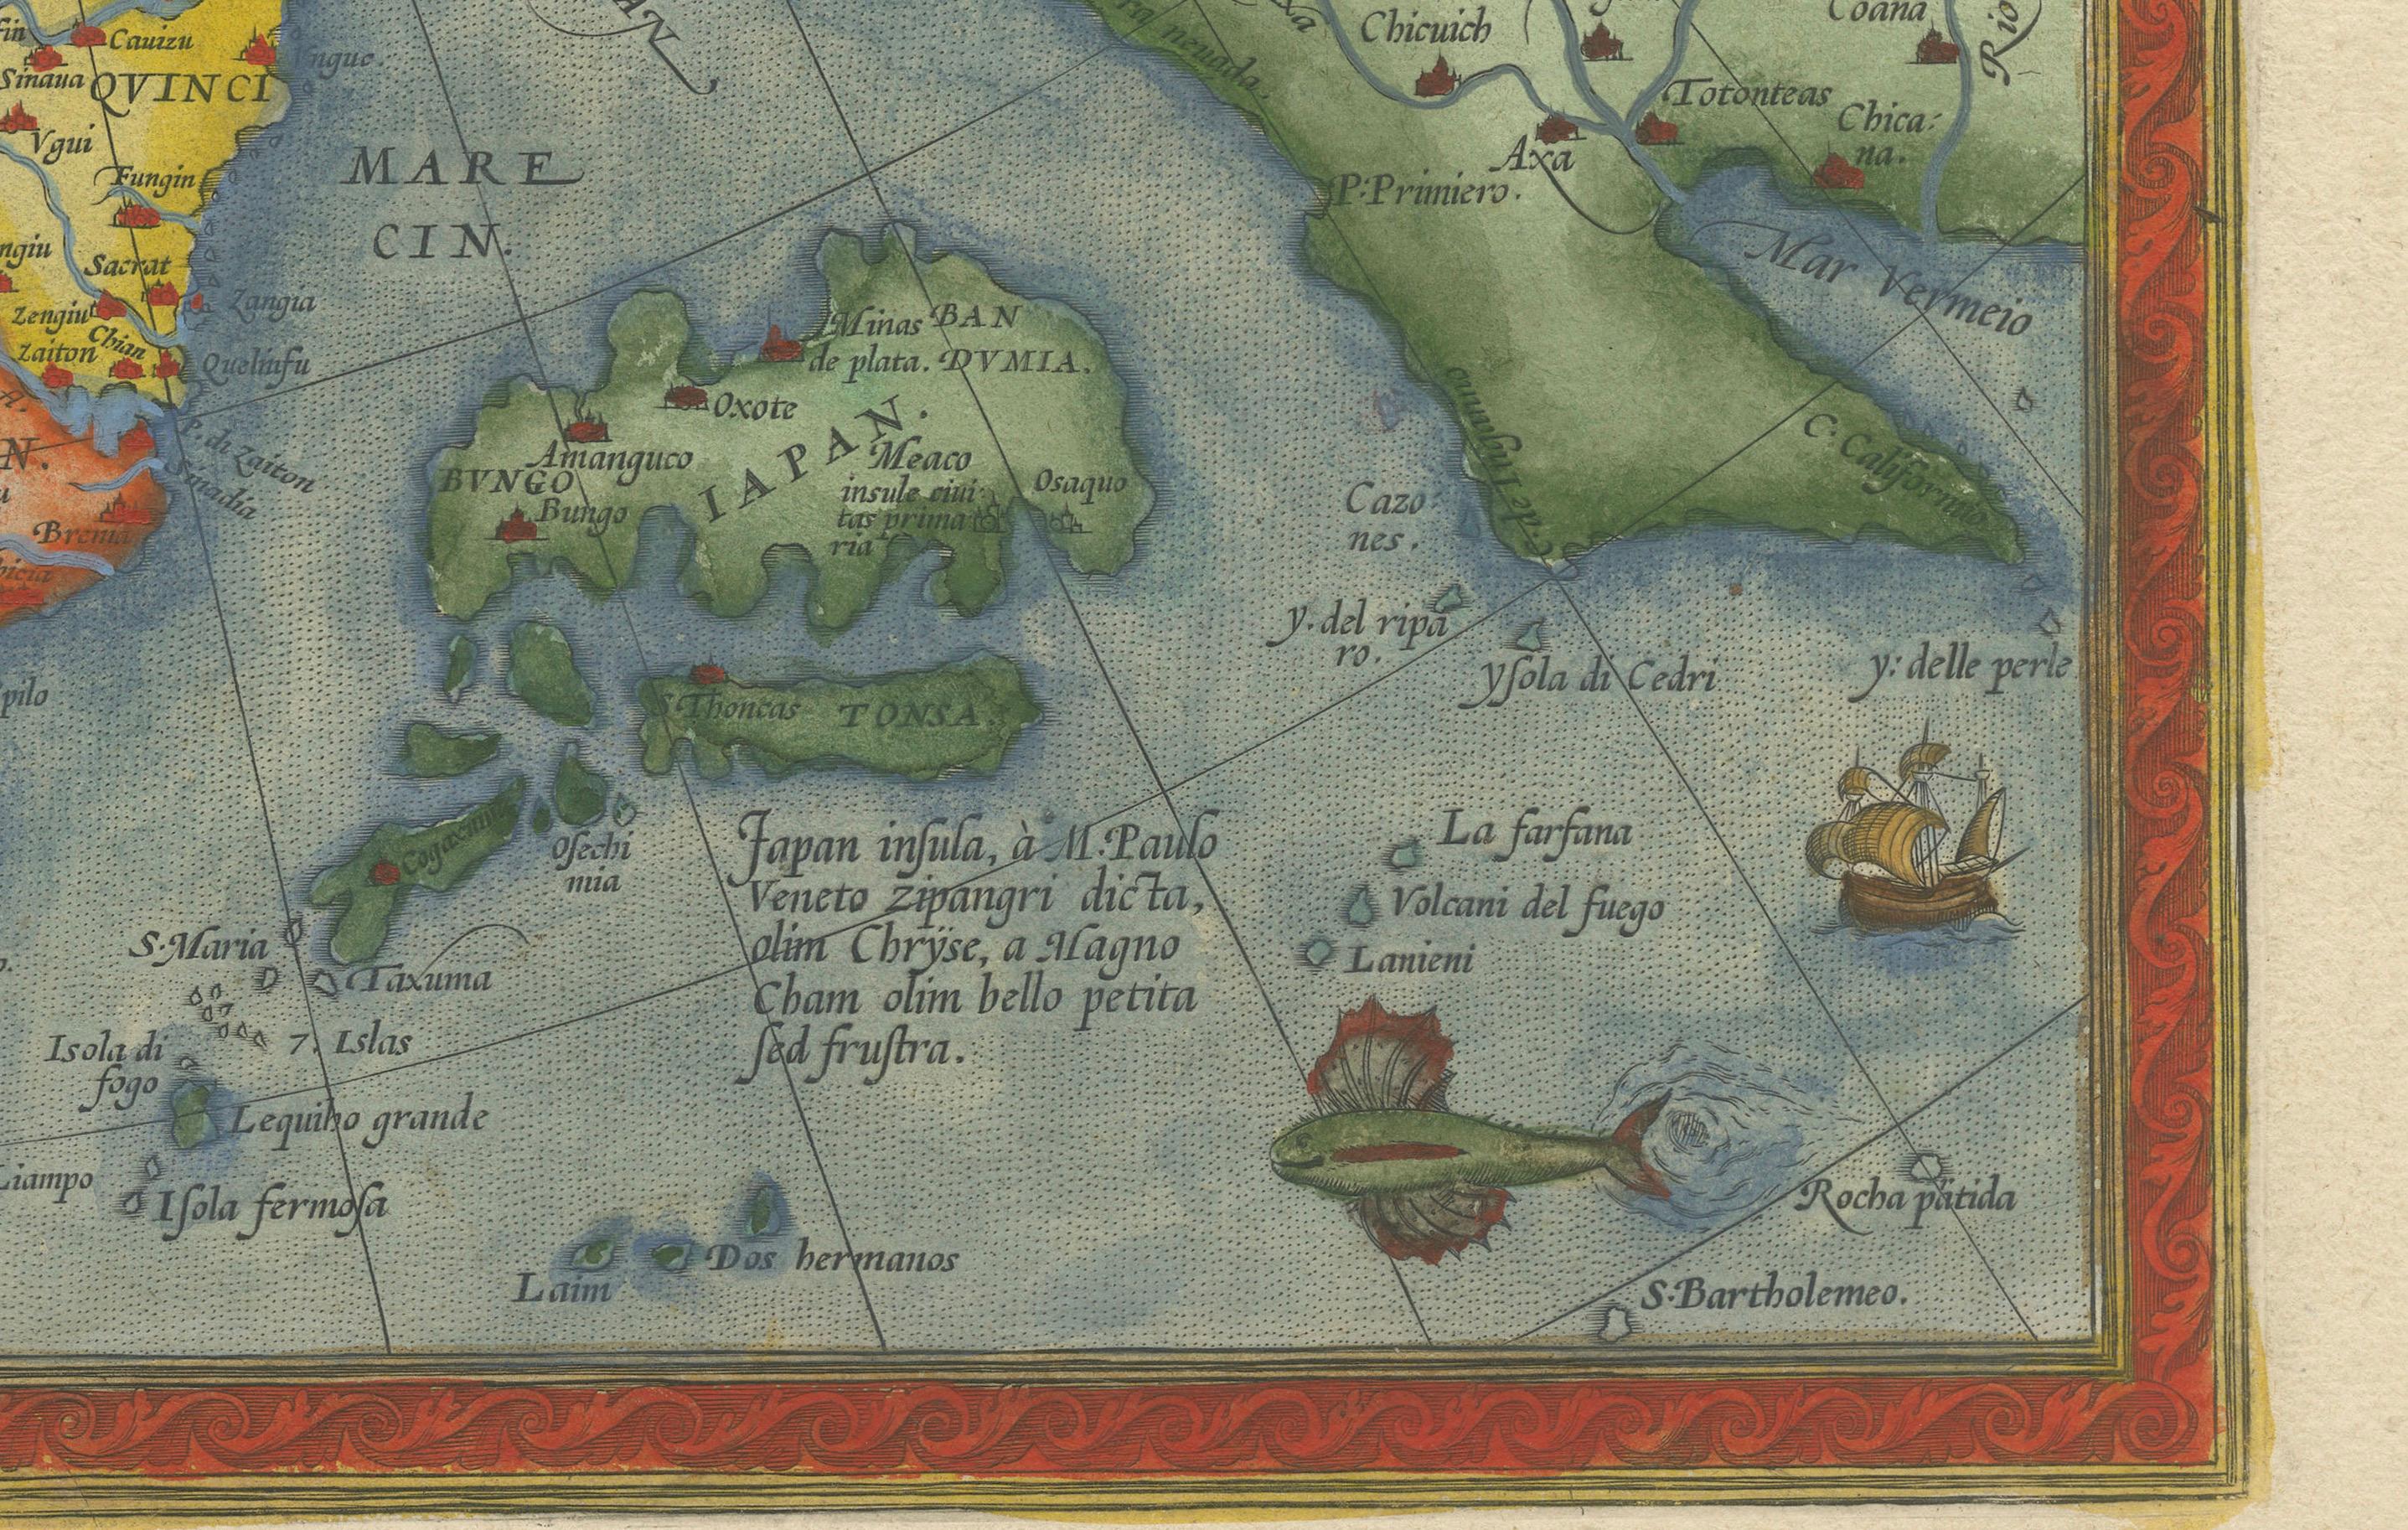 Cauizu
Sinaua
QVINCI
Vgui
Fungin
Sacrat
Zangia
Zengiu
Chian
Zaiton
Quelinfu
P. di Zaiton
Brema
MARE
CIN.
Chicuich
Coana
Rio
Totonteas
Chica:
na.
Axa
P: Primiero.
Mar Vermeio
C: Californio
Cazo:
nes.
y. del ripa
ro.
yſola di Cedri
y: delle perle
Minas
de plata.
BAN
DVMIA.
Oxote
Amanguco
BVNGO
Bungo
IAPAN.
Meaco
inſule ciui
tas prima
ria
Osaquo
TONSA.
Oſechi
mia
Japan inſula, à M. Paulo
Veneto Zipangri dicta,
olim Chrÿse, a Magno
Cham olim bello petita
ſed fruſtra.
La farfana
Volcani del fuego
Lanieni
S. Maria
Taxuma
7. Islas
Isola di
fogo
Lequiho grande
Liampo
Iſola fermoſa
Laim
Dos hermanos
Rocha pãtida
S. Bartholemeo.